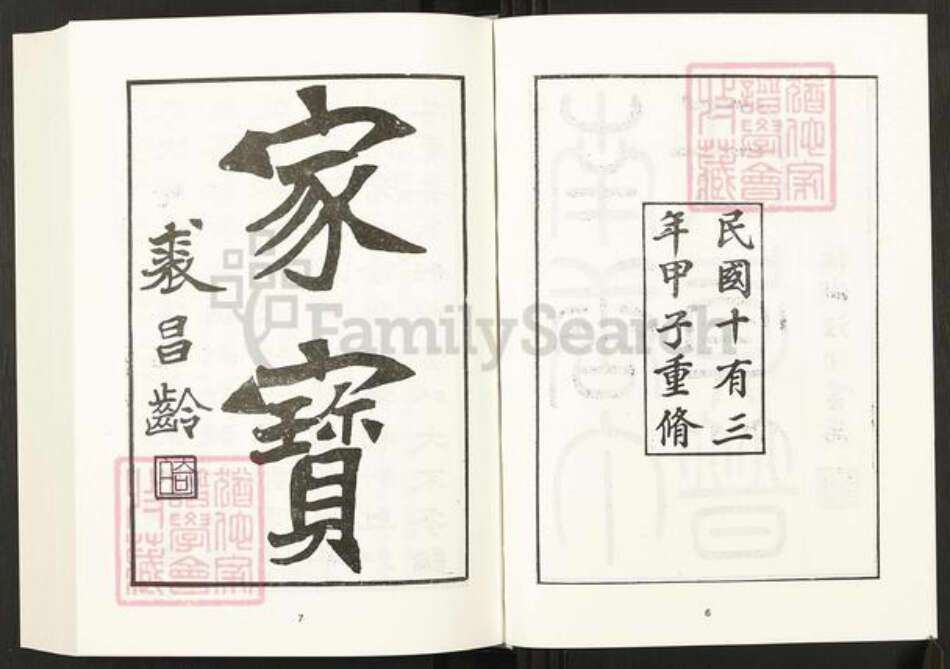 民國十有三
年甲子重脩
6
家寶
裘昌齡
7
FamilySearch